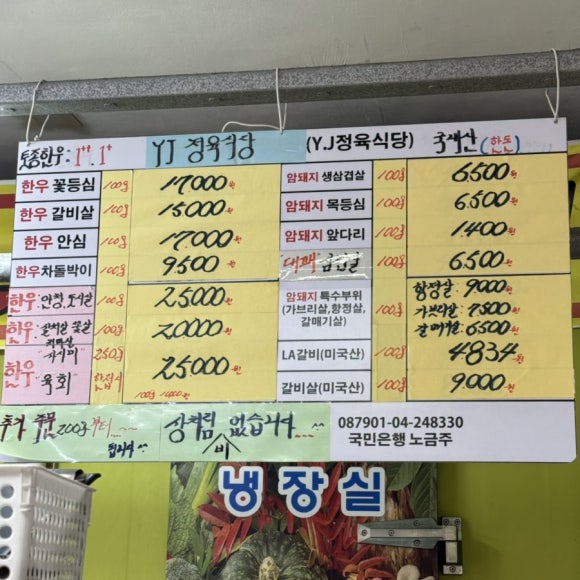 토종한우: 1⁺⁺. 1⁺ YJ 정육식당 (Y.J정육식당) 국내산 (한돈)
한우 꽃등심 100g 17000원
한우 갈비살 100g 15000원
한우 안심 100g 17000원
한우차돌박이 100g 9500원
한우 안창, 토시살 100g 25000원
한우 100g 20000원
한우 사시미 250g
"육회" 한접시 25000원
100g 10000원
암돼지 생삼겹살 100g 6500원
암돼지 목등심 100g 6.500원
암돼지 앞다리 100g 1400원
대패 삼겹살 100g 6.500원
암돼지 특수부위
(가브리살,항정살,
갈매기살)
100g
항정살 9000원
가브리살 7500원
갈매기살 6500원
LA갈비(미국산) 100g 4834원
갈비살(미국산) 100g 9.000원
추가 주문 200g부터
됩니다 ^^
상차림비 없습니다 ^^
087901-04-248330
국민은행 노금주
냉장실